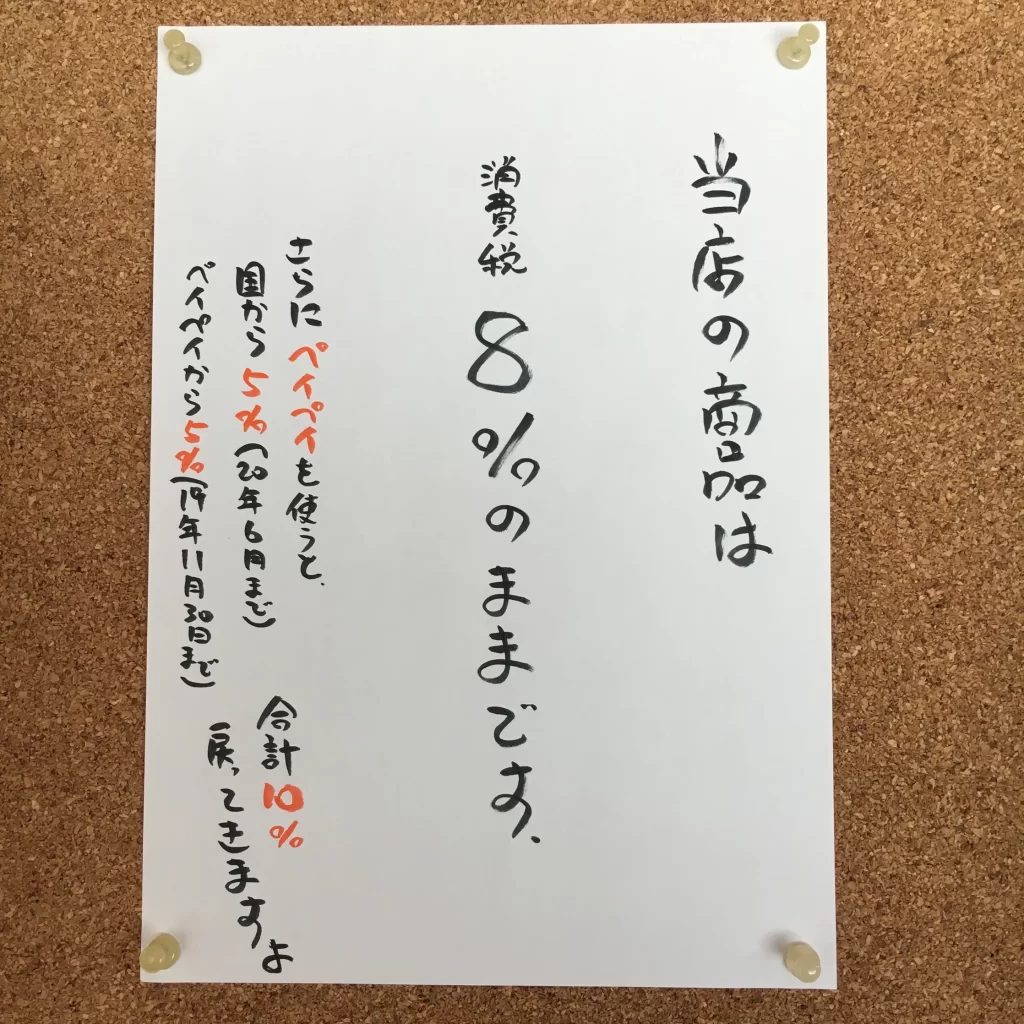 当店の商品は
消費税8%のままです.
さらにペイペイを使うと、
国から5%(20年6月まで)
ペイペイから5%(19年11月30日まで)
合計10%
戻ってきますよ